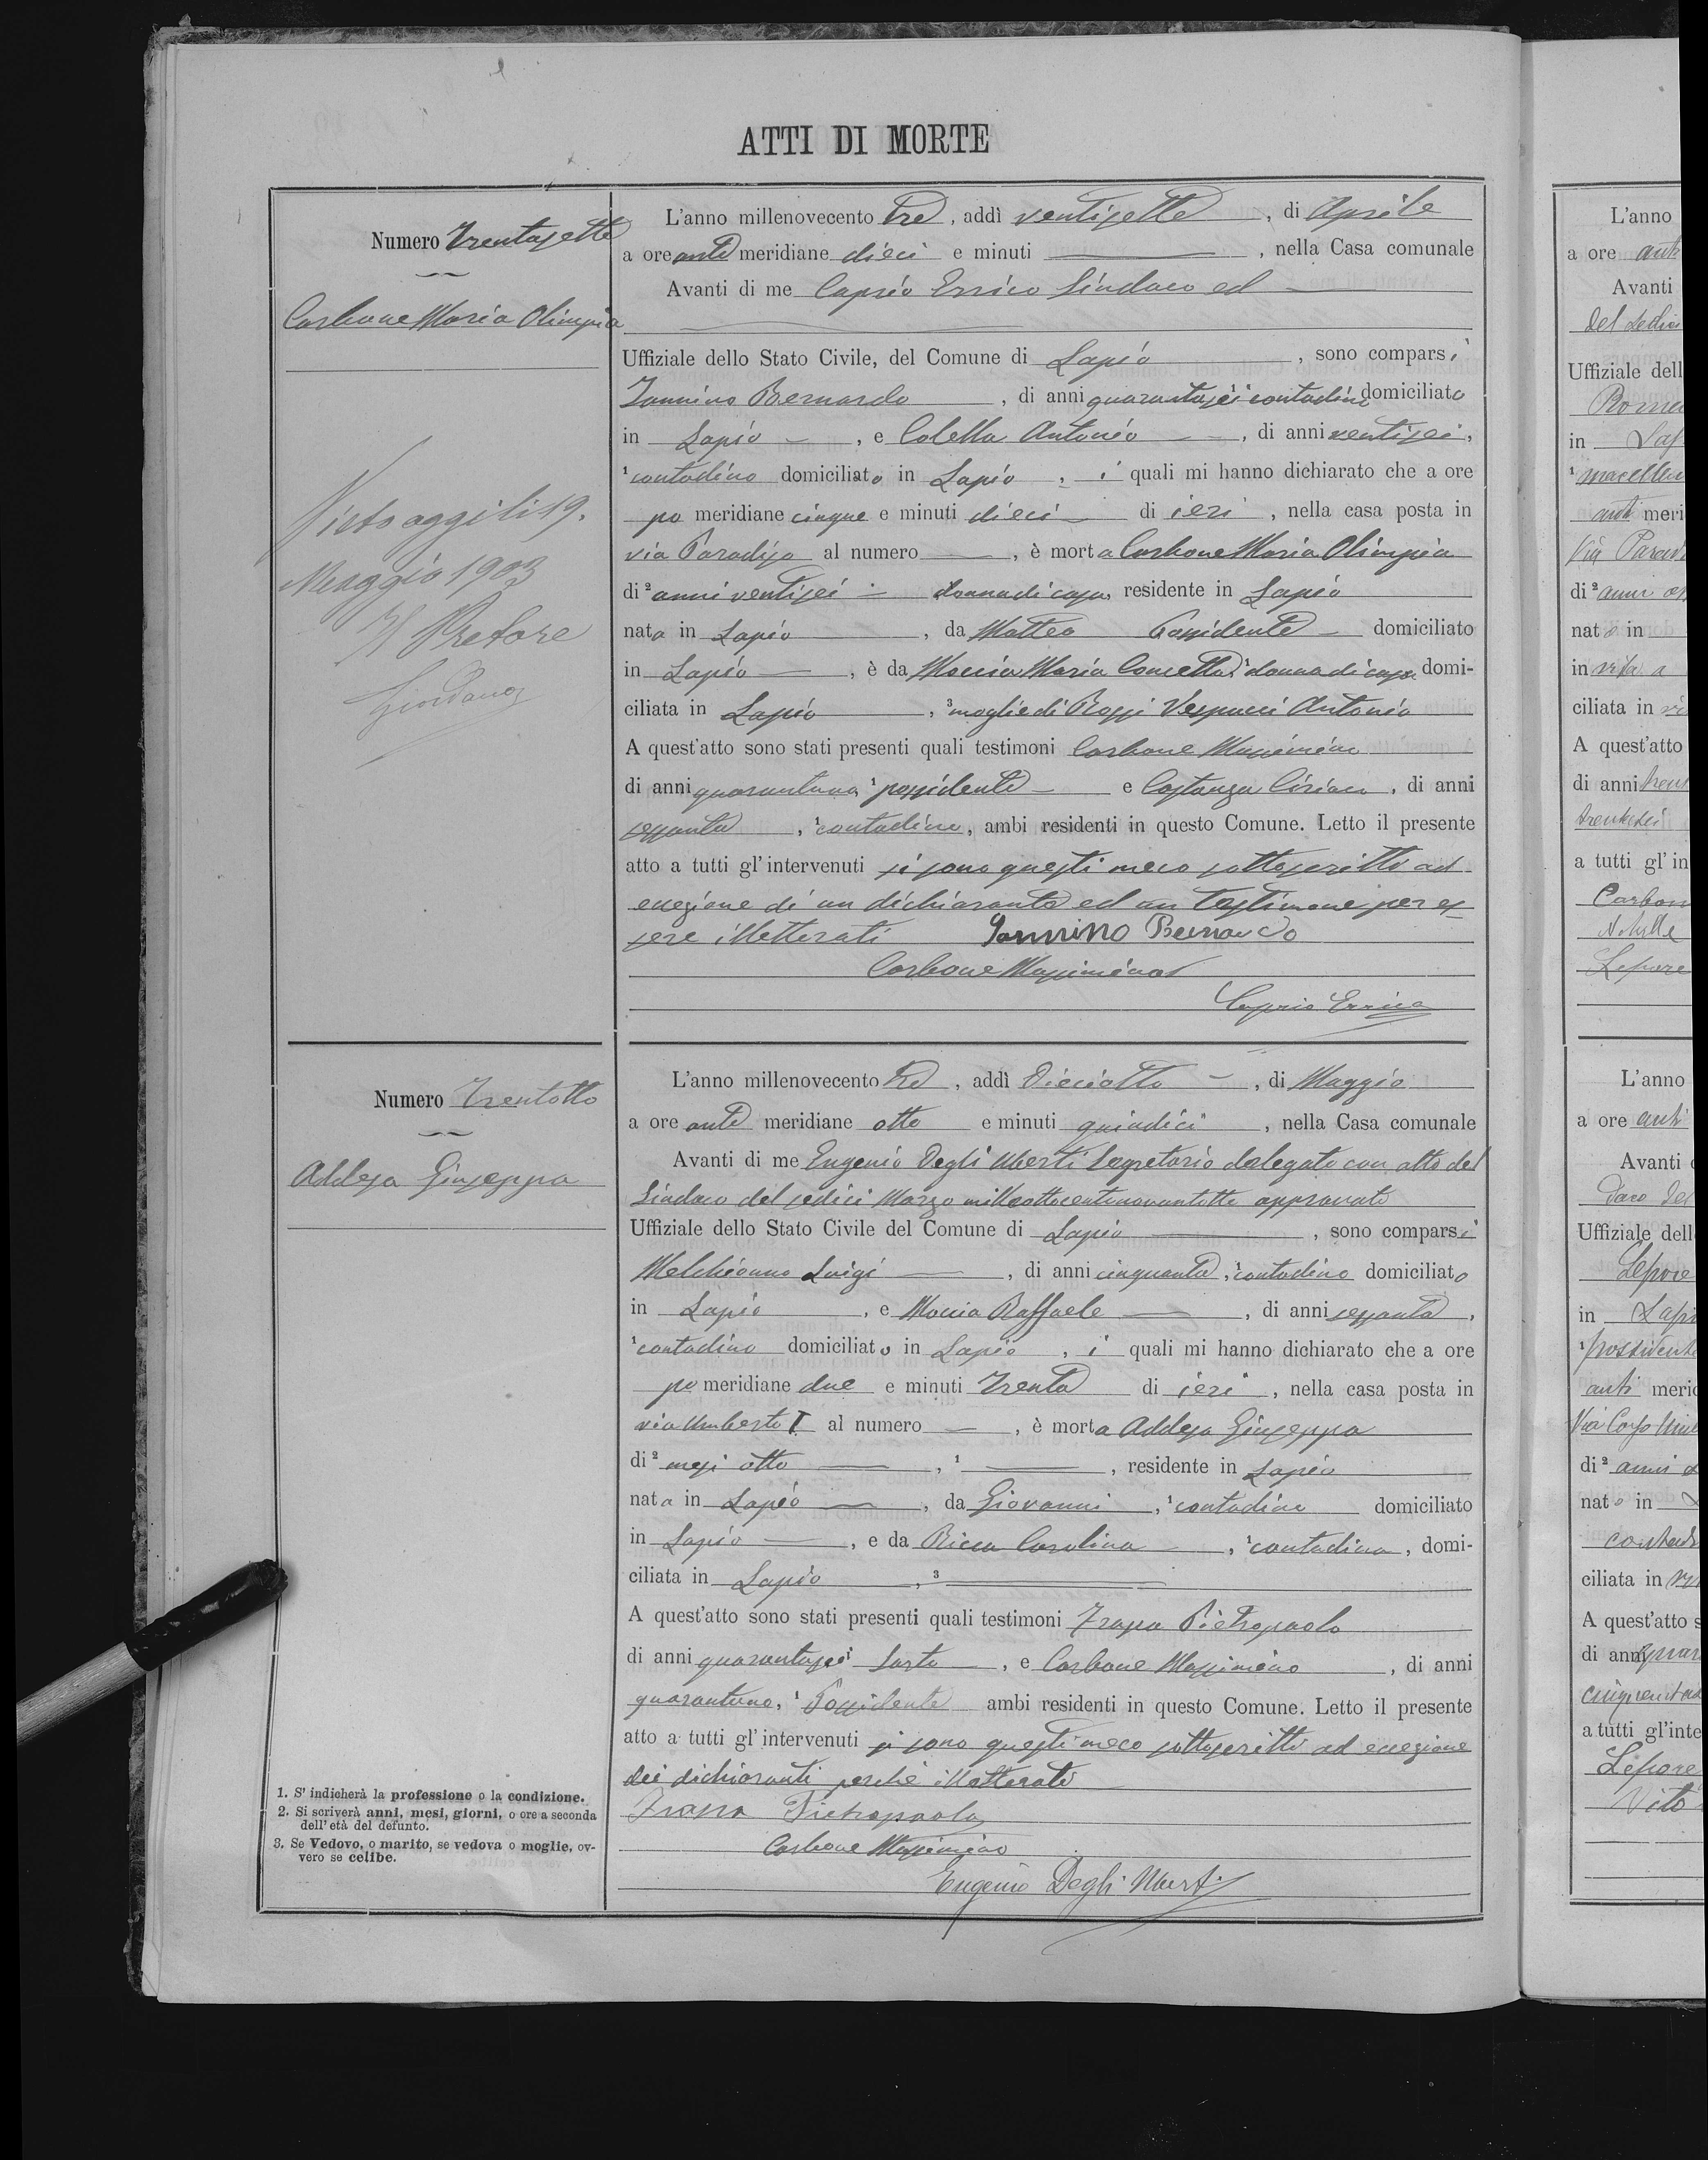 ATTI DI MORTE
Numero Trentasette
Carbone Maria Olimpia
Visto oggi li 19.
Maggio 1903
Il Pretore
Giordano
L'anno millenovecento tre, addì ventisette, di Aprile
a ore ante meridiane dieci e minuti, nella Casa comunale
Avanti di me Caprio Errico Sindaco ed
Uffiziale dello Stato Civile, del Comune di Lapio, sono comparsi
Iannino Bernardo, di anni quarantasei contadino domiciliato
in Lapio, e Colella Antonio, di anni ventisei,
1 contadino domiciliato in Lapio, i quali mi hanno dichiarato che a ore
po meridiane cinque e minuti dieci di ieri, nella casa posta in
via Paradiso al numero, è morta Carbone Maria Olimpia
di 2 anni ventisei donna di casa, residente in Lapio
nata in Lapio, da Matteo Possidente domiciliato
in Lapio, è da Moccia Maria Concetta 1 donna di casa domi-
ciliata in Lapio, 3 moglie di Rossi Vespucci Antonio
A quest'atto sono stati presenti quali testimoni Carbone Massimino
di anni quarantuno 1 possidente e Costanza Ciriaco, di anni
sessanta, 1 contadino, ambi residenti in questo Comune. Letto il presente
atto a tutti gl'intervenuti si sono questi meco sottoscritti ad
eccezione di un dichiarante ed un testimone per es
sere illetterati Iannino Bernardo
Carbone Massimino
Caprio Errico
Numero Trentotto
Addesa Giuseppa
L'anno millenovecento tre, addì Dieciotto, di Maggio
a ore ante meridiane otto e minuti quindici, nella Casa comunale
Avanti di me Eugenio Degli Uberti Segretario delegato con atto del
Sindaco del sedici Marzo milleottocentonovantotto approvato
Uffiziale dello Stato Civile del Comune di Lapio, sono comparsi
Melchionno Luigi, di anni cinquanta, 1 contadino domiciliato
in Lapio, e Moccia Raffaele, di anni sessanta,
1 contadino domiciliato in Lapio, i quali mi hanno dichiarato che a ore
po meridiane due e minuti Trenta di ieri, nella casa posta in
via Umberto I al numero, è morta Addesa Giuseppa
di 2 mesi otto, 1, residente in Lapio
nata in Lapio, da Giovanni, 1 contadino domiciliato
in Lapio, e da Ricca Carolina, 1 contadina, domi-
ciliata in Lapio, 3
A quest'atto sono stati presenti quali testimoni Trapa Pietropaolo
di anni quarantasei 1 Sarto, e Carbone Massimino, di anni
quarantuno, 1 Possidente ambi residenti in questo Comune. Letto il presente
atto a tutti gl'intervenuti si sono questi meco sottoscritti ad eccezione
dei dichiaranti perchè illetterati
Pietropaolo
Carbone Massimino
Eugenio Degli Uberti
1. S'indicherà la professione o la condizione.
2. Si scriverà anni, mesi, giorni, o ore a seconda
dell'età del defunto.
3. Se Vedovo, o marito, se vedova o moglie, ov-
vero se celibe.
L'anno
a ore anti
Avanti
Uffiziale dell
in
1 macellaio
anti meri
Via
di 2 anni
nato in
in vita a
ciliata in
A quest'atto
di anni
trentasei
a tutti gl'in
Achille
Lepore
L'anno
a ore anti
Avanti
Uffiziale dell
Lepore
in
1
anti meri
Via Corso
di 2 anni
nato in
ciliata in
A quest'atto s
di anni
a tutti gl'inte
Lepore
Vito